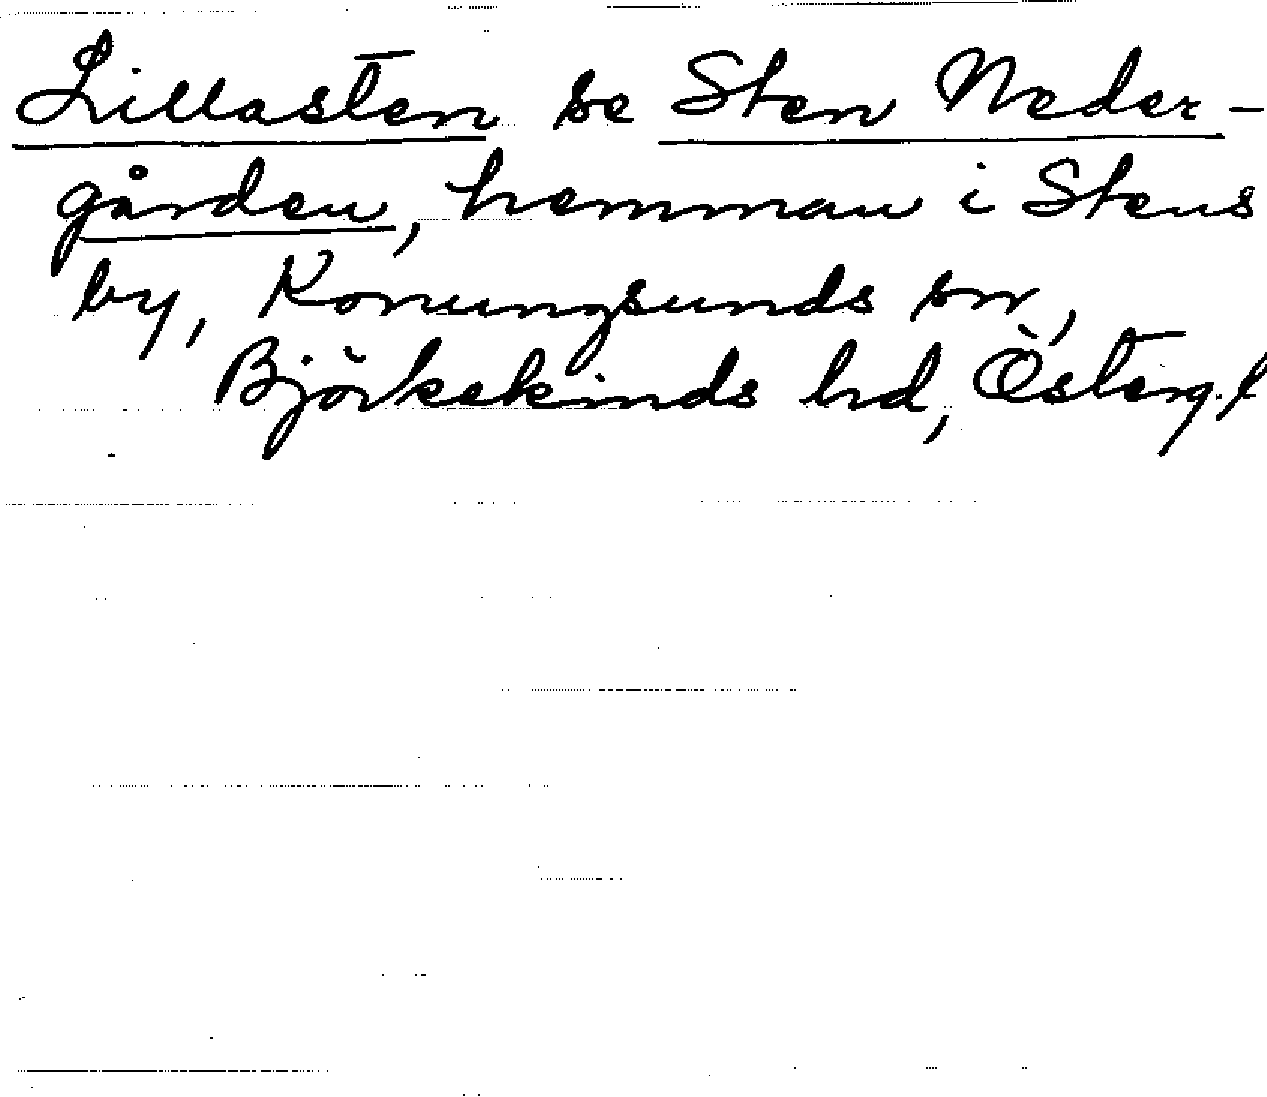 Lillasten se Sten Neder-
gården, hemman i Stens
by, Konungsunds sn,
Björkekinds hd, Österg. l